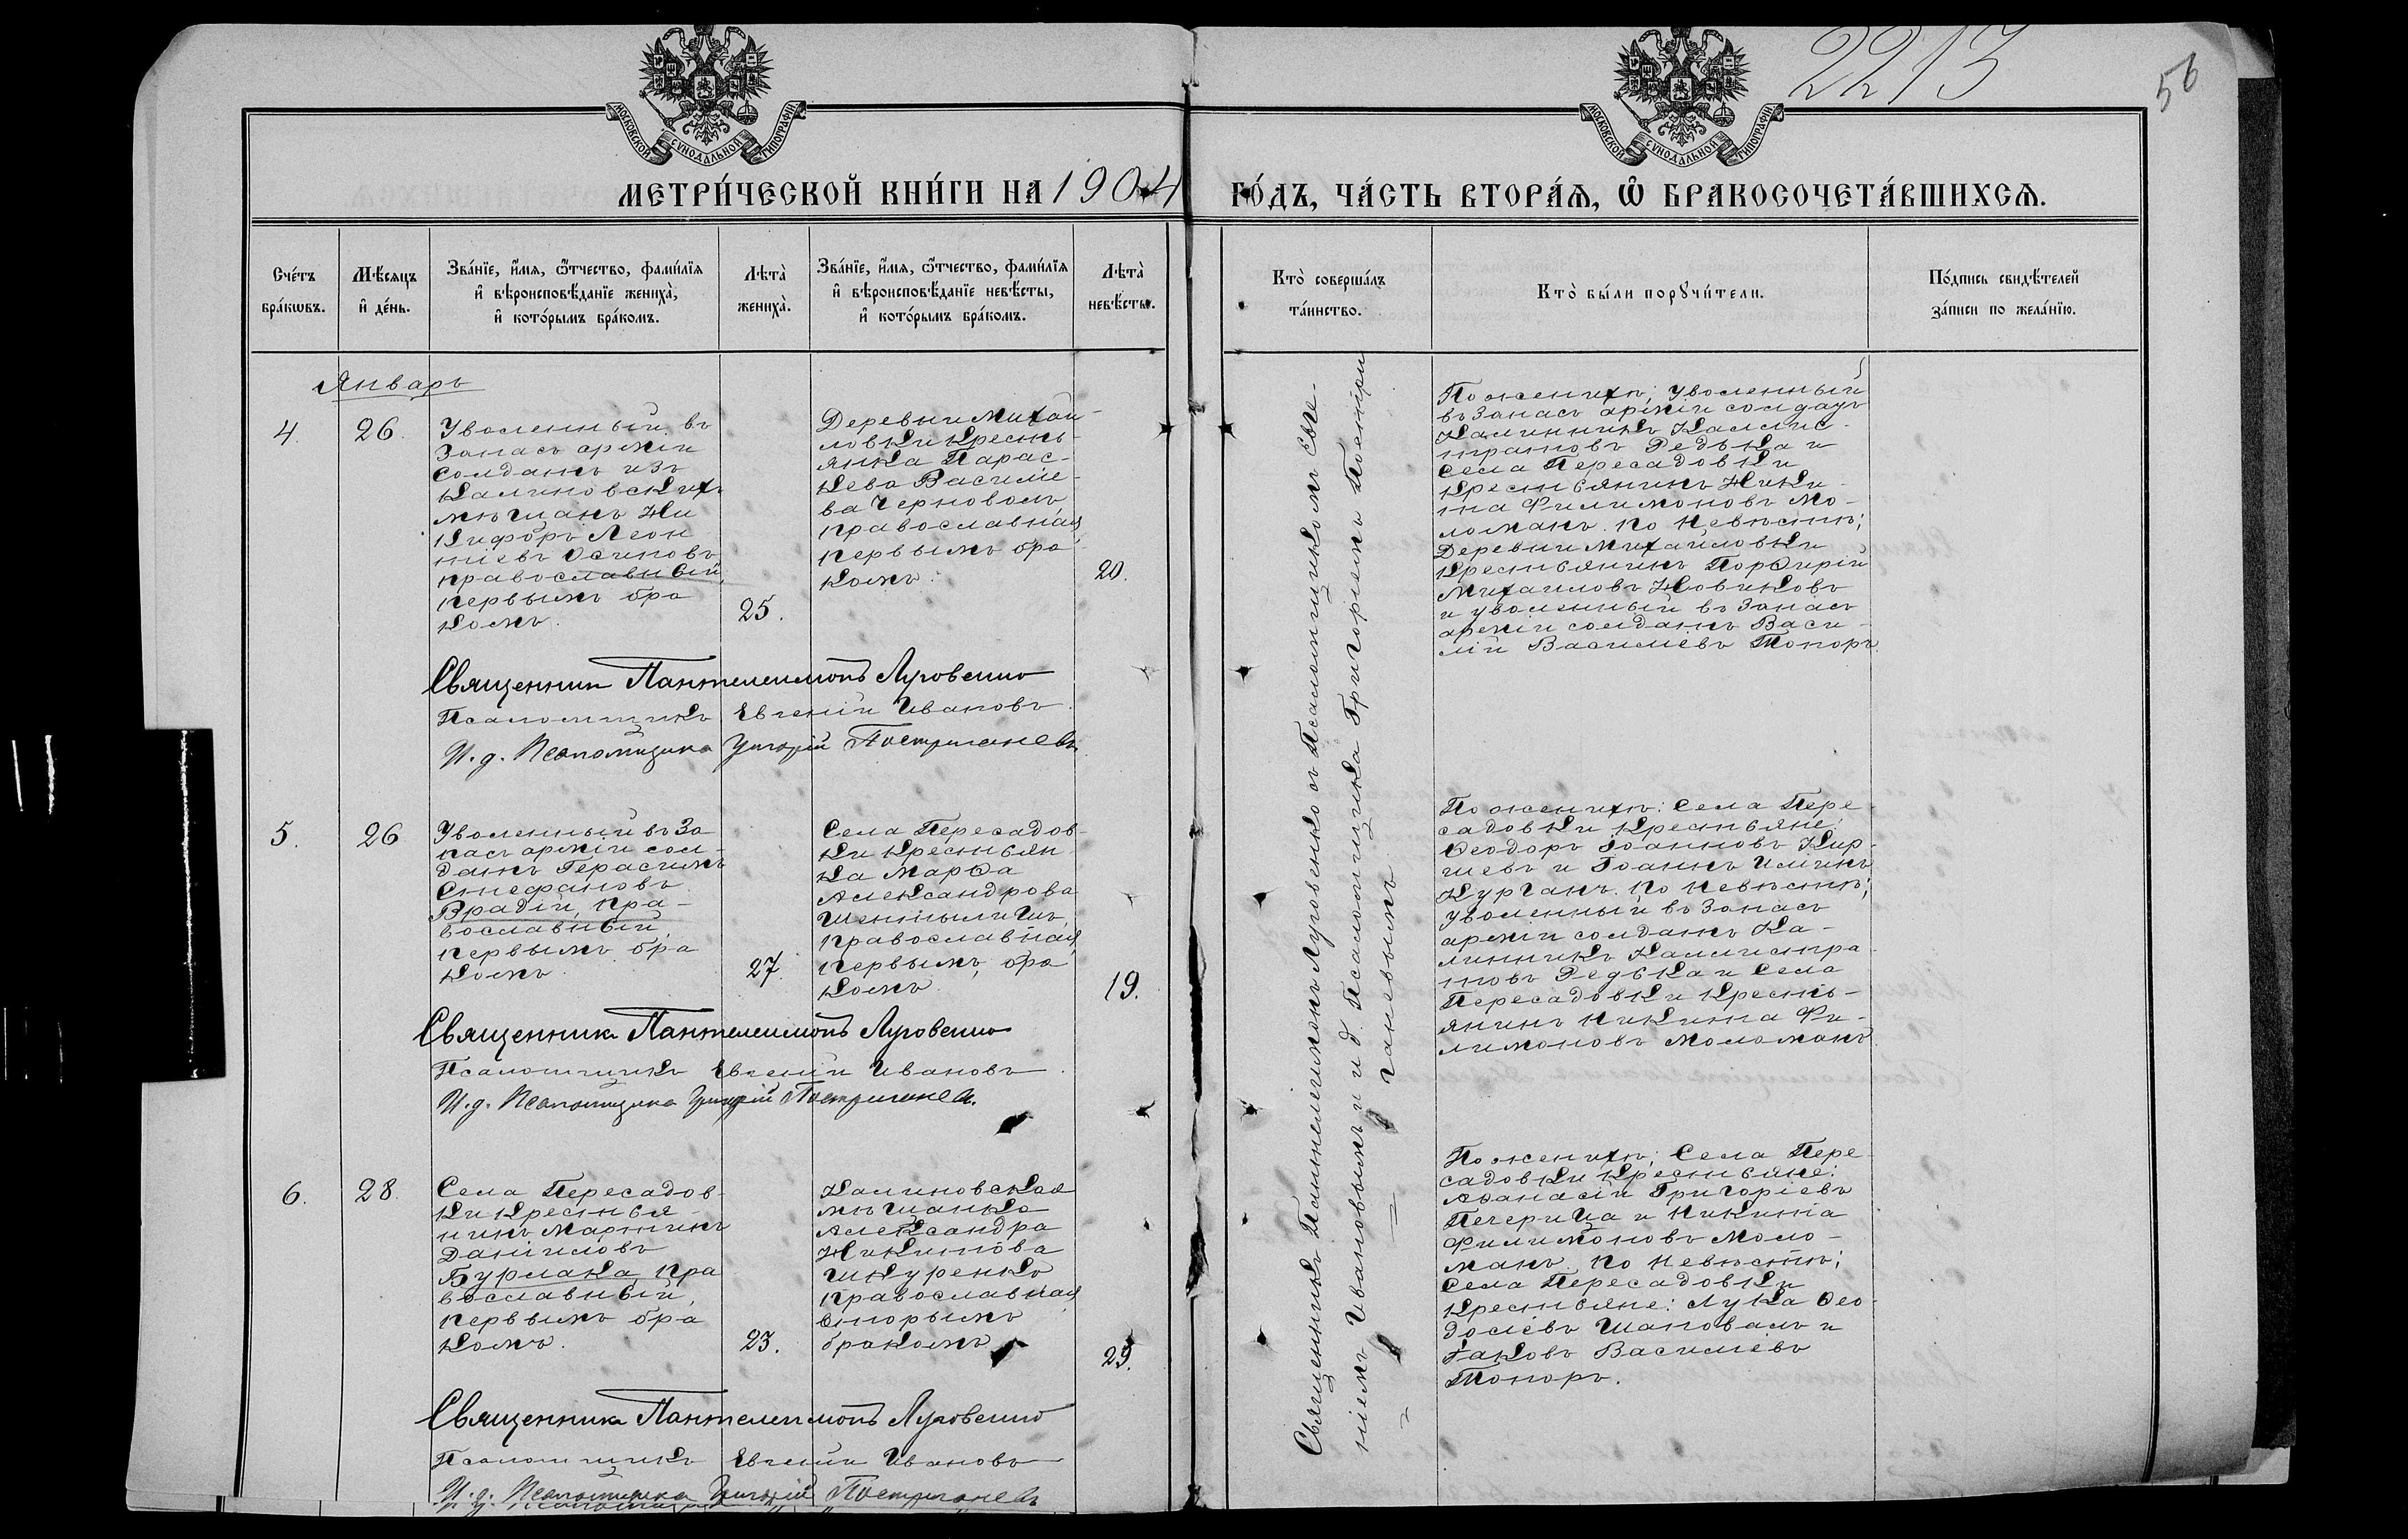 2213
56
МОСКОВСКОЙ СѴНОДАЛЬНОЙ ТИПОГРАФІИ
МОСКОВСКОЙ СѴНОДАЛЬНОЙ ТИПОГРАФІИ
МЕТРИ́ЧЕСКОЙ КНИ́ГИ НА 1904 ГО́ДЪ, ЧА́СТЬ ВТОРА́Ѧ, Ѽ БРАКОСОЧЕТА́ВШИХСѦ.
Сче́тъ
бра́кѡвъ.
Мѣ́сяцъ
и҆ де́нь.
Зва́нїе, и҆́мѧ, ѻ҆́тчество, фами́лїѧ
и҆ вѣроисповѣ́данїе жениха̀,
и҆ кото́рымъ бра́комъ.
Лѣта̀
жениха̀.
Зва́нїе, и҆́мѧ, ѻ҆́тчество, фами́лїѧ
и҆ вѣроисповѣ́данїе невѣ́сты,
и҆ кото́рымъ бра́комъ.
Лѣта̀
невѣ́сты.
Кто̀ соверша́лъ
та́инство.
Кто̀ бы́ли порꙋчи́тели.
По́дпись свидѣ́телей
за́писи по жела́нїю.
Январь
4.
26.
Уволенный въ
Запасъ арміи
Солдатъ изъ
Калиновскихъ
мѣщанъ Ни
кифоръ Леон
тіевъ Осиповъ
православный,
первымъ бра
комъ.
25.
Деревни Михай-
ловки кресть-
янка Парас-
кева Василье-
ва Черноволъ,
православная,
первымъ бра
комъ.
20.
Священникъ Пантелеимонъ Луговенко съ Псаломщикомъ Евге-
ніемъ Ивановымъ и и.д. Псаломщика Григоріемъ Постри
ганевымъ
По женихѣ; Уволенный
въ Запасъ арміи солдатъ
Калинникъ Каллис-
тратовъ Редька и
Села Пересадовки
Крестьянинъ Ники-
та Филимоновъ Мо-
ломанъ. По Невѣстѣ;
Деревни Михайловки
Крестьянинъ Порѳирій
Михаиловъ Новиковъ
и уволенный въ Запасъ
арміи солдатъ Васи-
лій Василіевъ Топоръ.
Священник Пантелеимонъ Луговенко
Псаломщикъ Евгеній Ивановъ.
И.д. Псаломщика Григорій Постриганевъ
5.
26
Уволенный въ За
пасъ арміи сол-
датъ Герасимъ
Стефановъ
Врадій, пра-
вославный,
первымъ бра
комъ.
27.
Села Пересадов-
ки крестьян
ка Марѳа
Александрова
православная,
первымъ бра
комъ.
19.
По женихѣ: Села Пере
садовки крестьяне:
Ѳеодоръ Іоанновъ Кир-
Іоаннъ Ильинъ
Курганъ. По Невѣстѣ;
Уволенный въ Запасъ
арміи солдатъ Ка-
линникъ Каллистра-
товъ Редька и Села
Пересадовки Кресть-
янинъ Никита Фи-
лимоновъ Моломанъ.
Священника Пантелеимонъ Луговенко
Псаломщикъ Евгеній Ивановъ.
И.д. Псаломщика Григорій Постриганевъ.
6.
28.
Села Пересадов-
ки крестья-
нинъ Мартинъ
Даніиловъ
Бурлака, пра
вославный,
первымъ бра
комъ.
23.
Калиновская
мѣщанка
Александра
Никитова
Шкуренко
православная
вторымъ
бракомъ
29.
По женихѣ; Села Пере
садовки крестьяне:
Аѳанасій Григоріевъ
Печерица и Никита
Филимоновъ Моло-
манъ. По невѣстѣ;
Села Пересадовки
Крестьяне: Лука Ѳео-
досіевъ Шаповалъ и
Іаковъ Василіевъ
Топоръ.
Священника Пантелеимонъ Луговенко
Псаломщикъ Евгеній Ивановъ
И.д. Псаломщика Григорій Постриганевъ